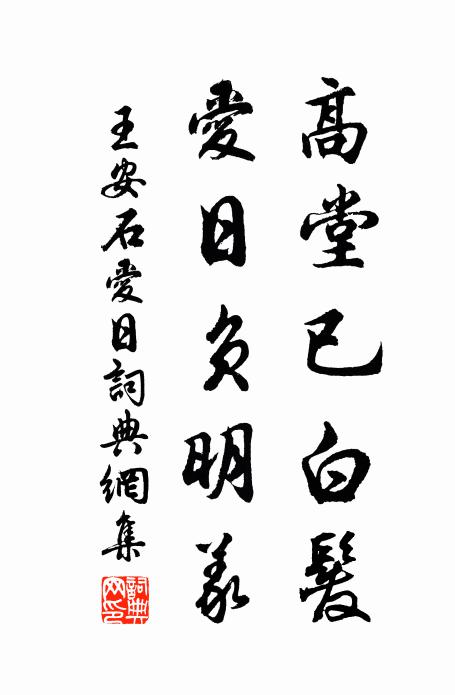 高堂已白髮
愛日負明義
王安石愛日詞典網集
詞典網印